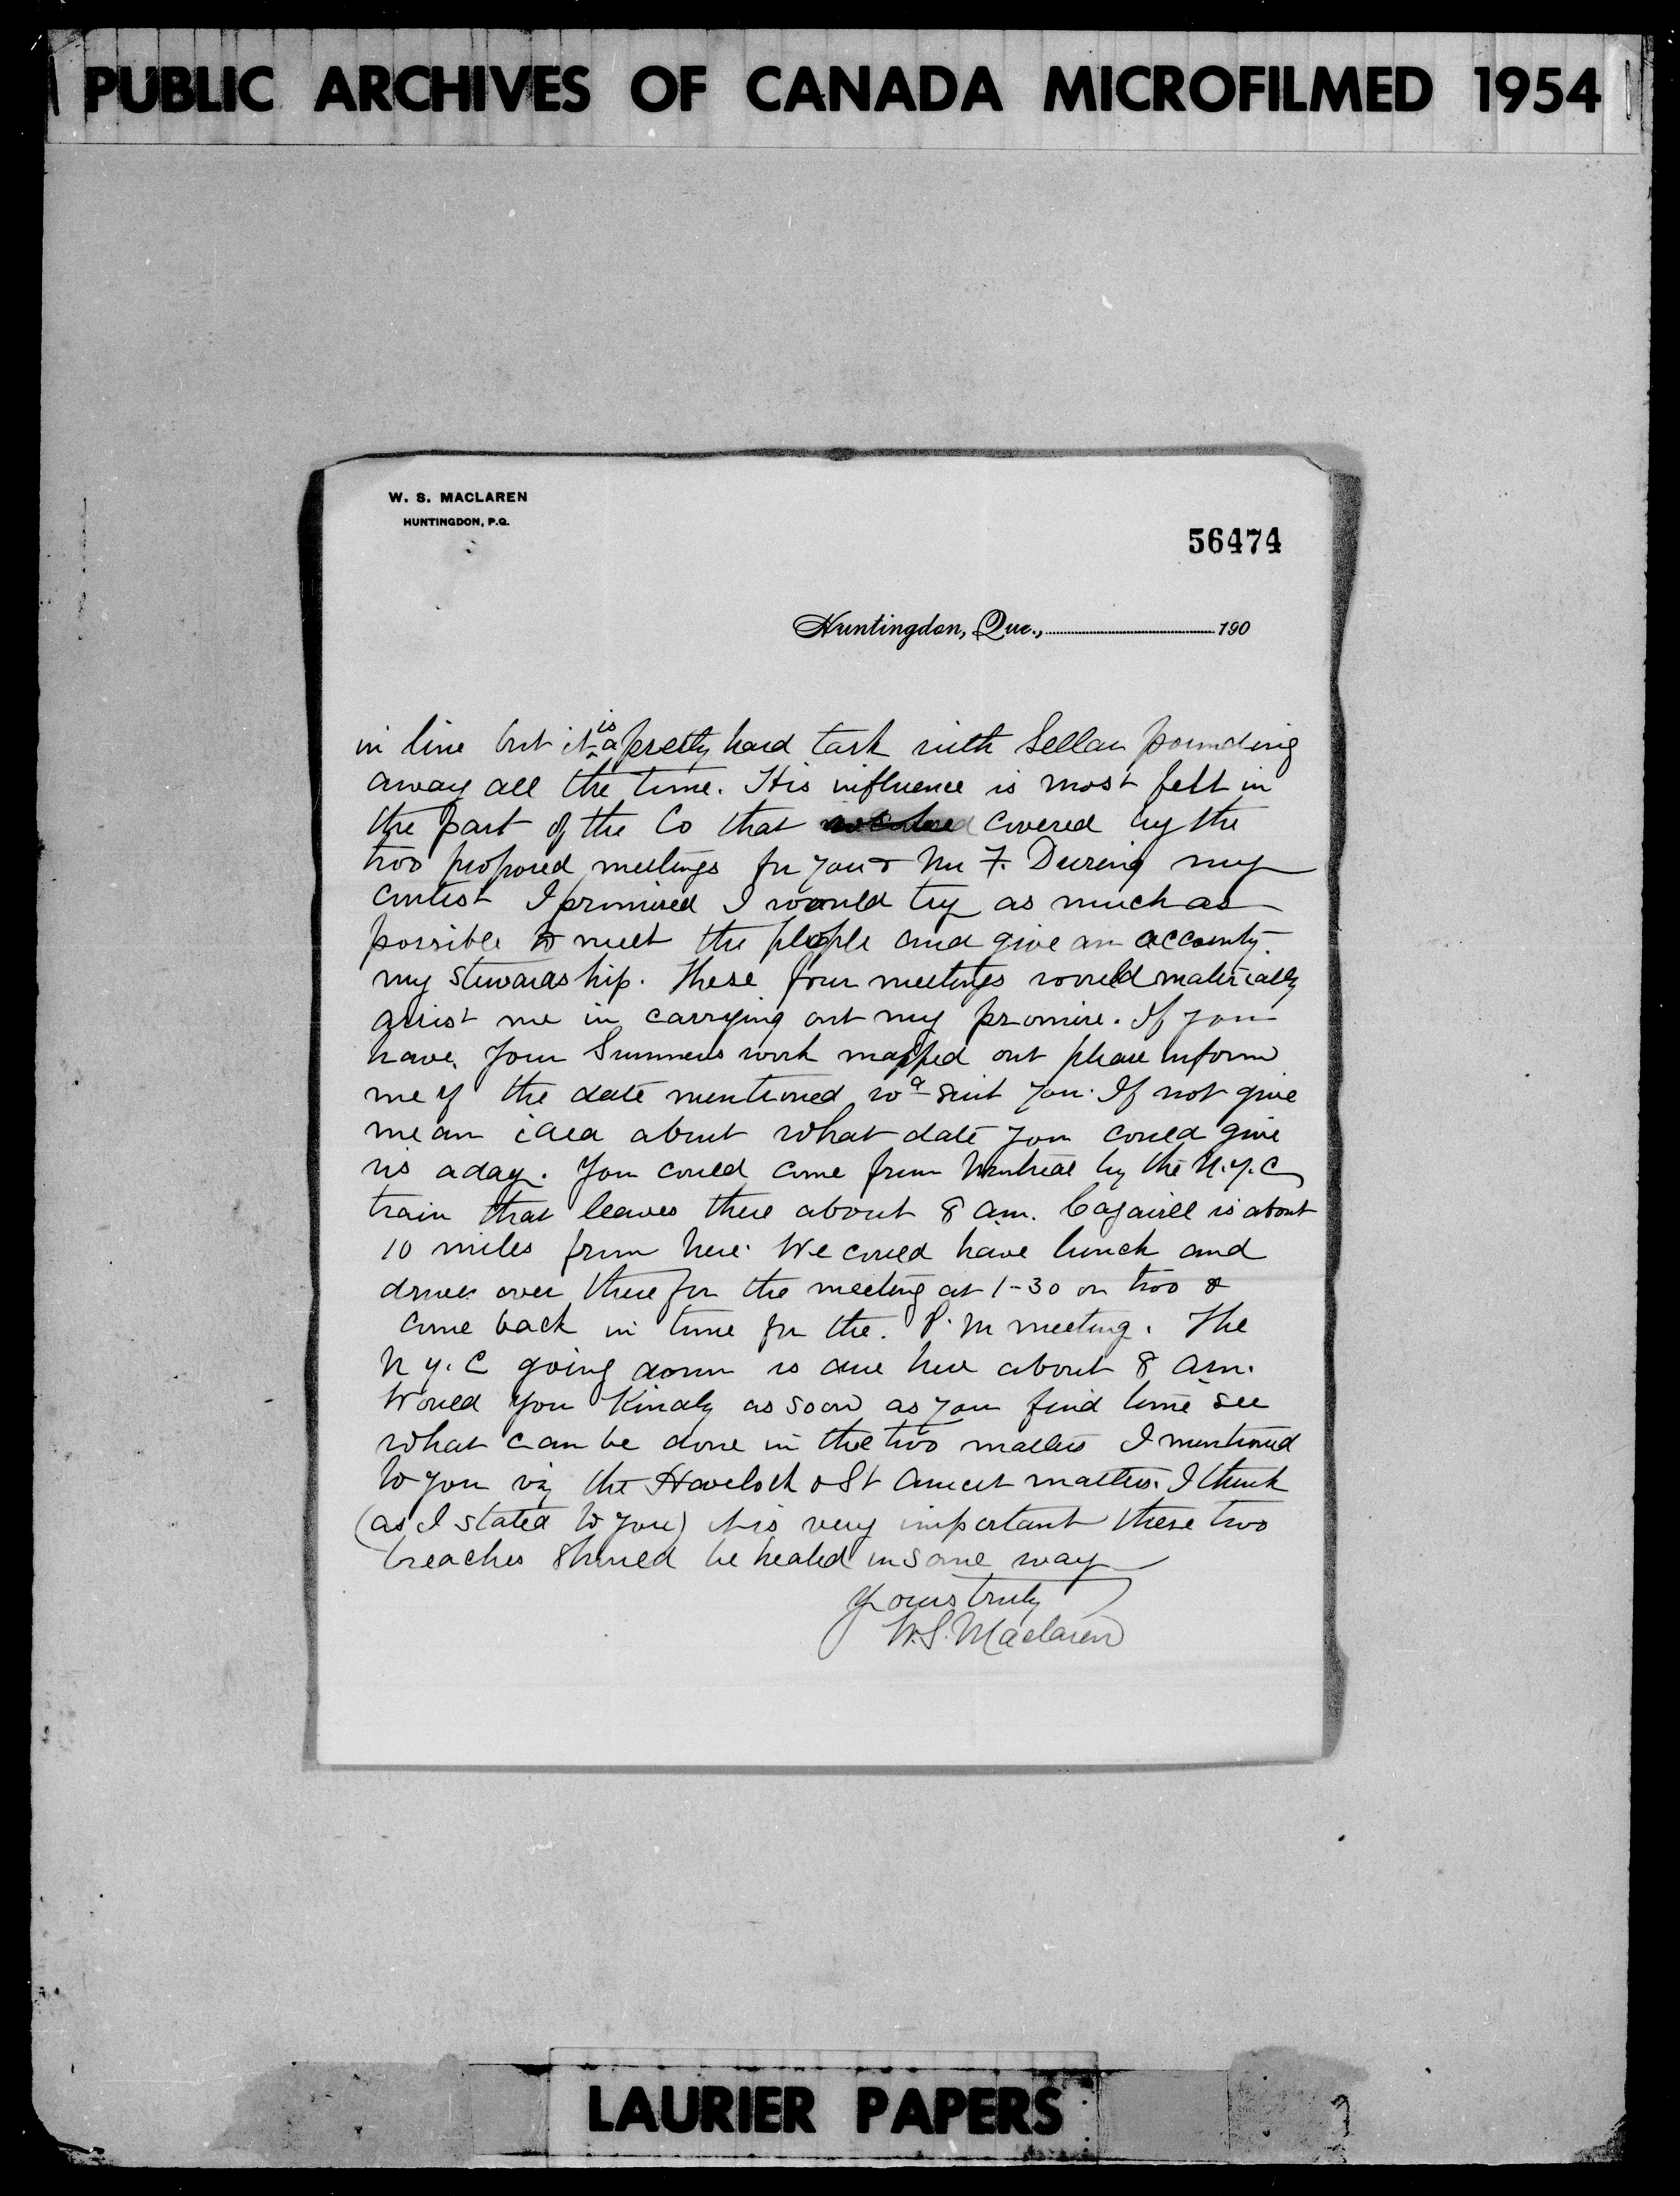 PUBLIC ARCHIVES OF CANADA MICROFILMED 1954
W. S. MACLAREN
HUNTINGDON, P.Q.
56474
Huntingdon, Que., 190
in line but it is a pretty hard task with Sellar pounding
away all the time. His influence is most felt in
the part of the Co that covered by the
two proposed meetings for you & Mr F. During my
contest I promised I would try as much as
possible to meet the people and give an account of
my stewardship. These four meetings would materially
assist me in carrying out my promise. If you
have your Summers work mapped out please inform
me if the date mentioned wd suit you. If not give
me an idea about what date you could give
us a day. You could come from Montreal by the N.Y.C
train that leaves there about 8 am. is about
10 miles from here. We could have lunch and
drive over there for the meeting at 1-30 or two &
come back in time for the. P.M meeting. The
N Y. C going down is due here about 8 am.
Would you Kindly as soon as you find time see
what can be done in the two matters I mentioned
to you viz the Havelock & St Anicet matters. I think
(as I stated to you) it is very important these two
breaches should be healed in some way
Yours truly
W.S. Maclaren
LAURIER PAPERS